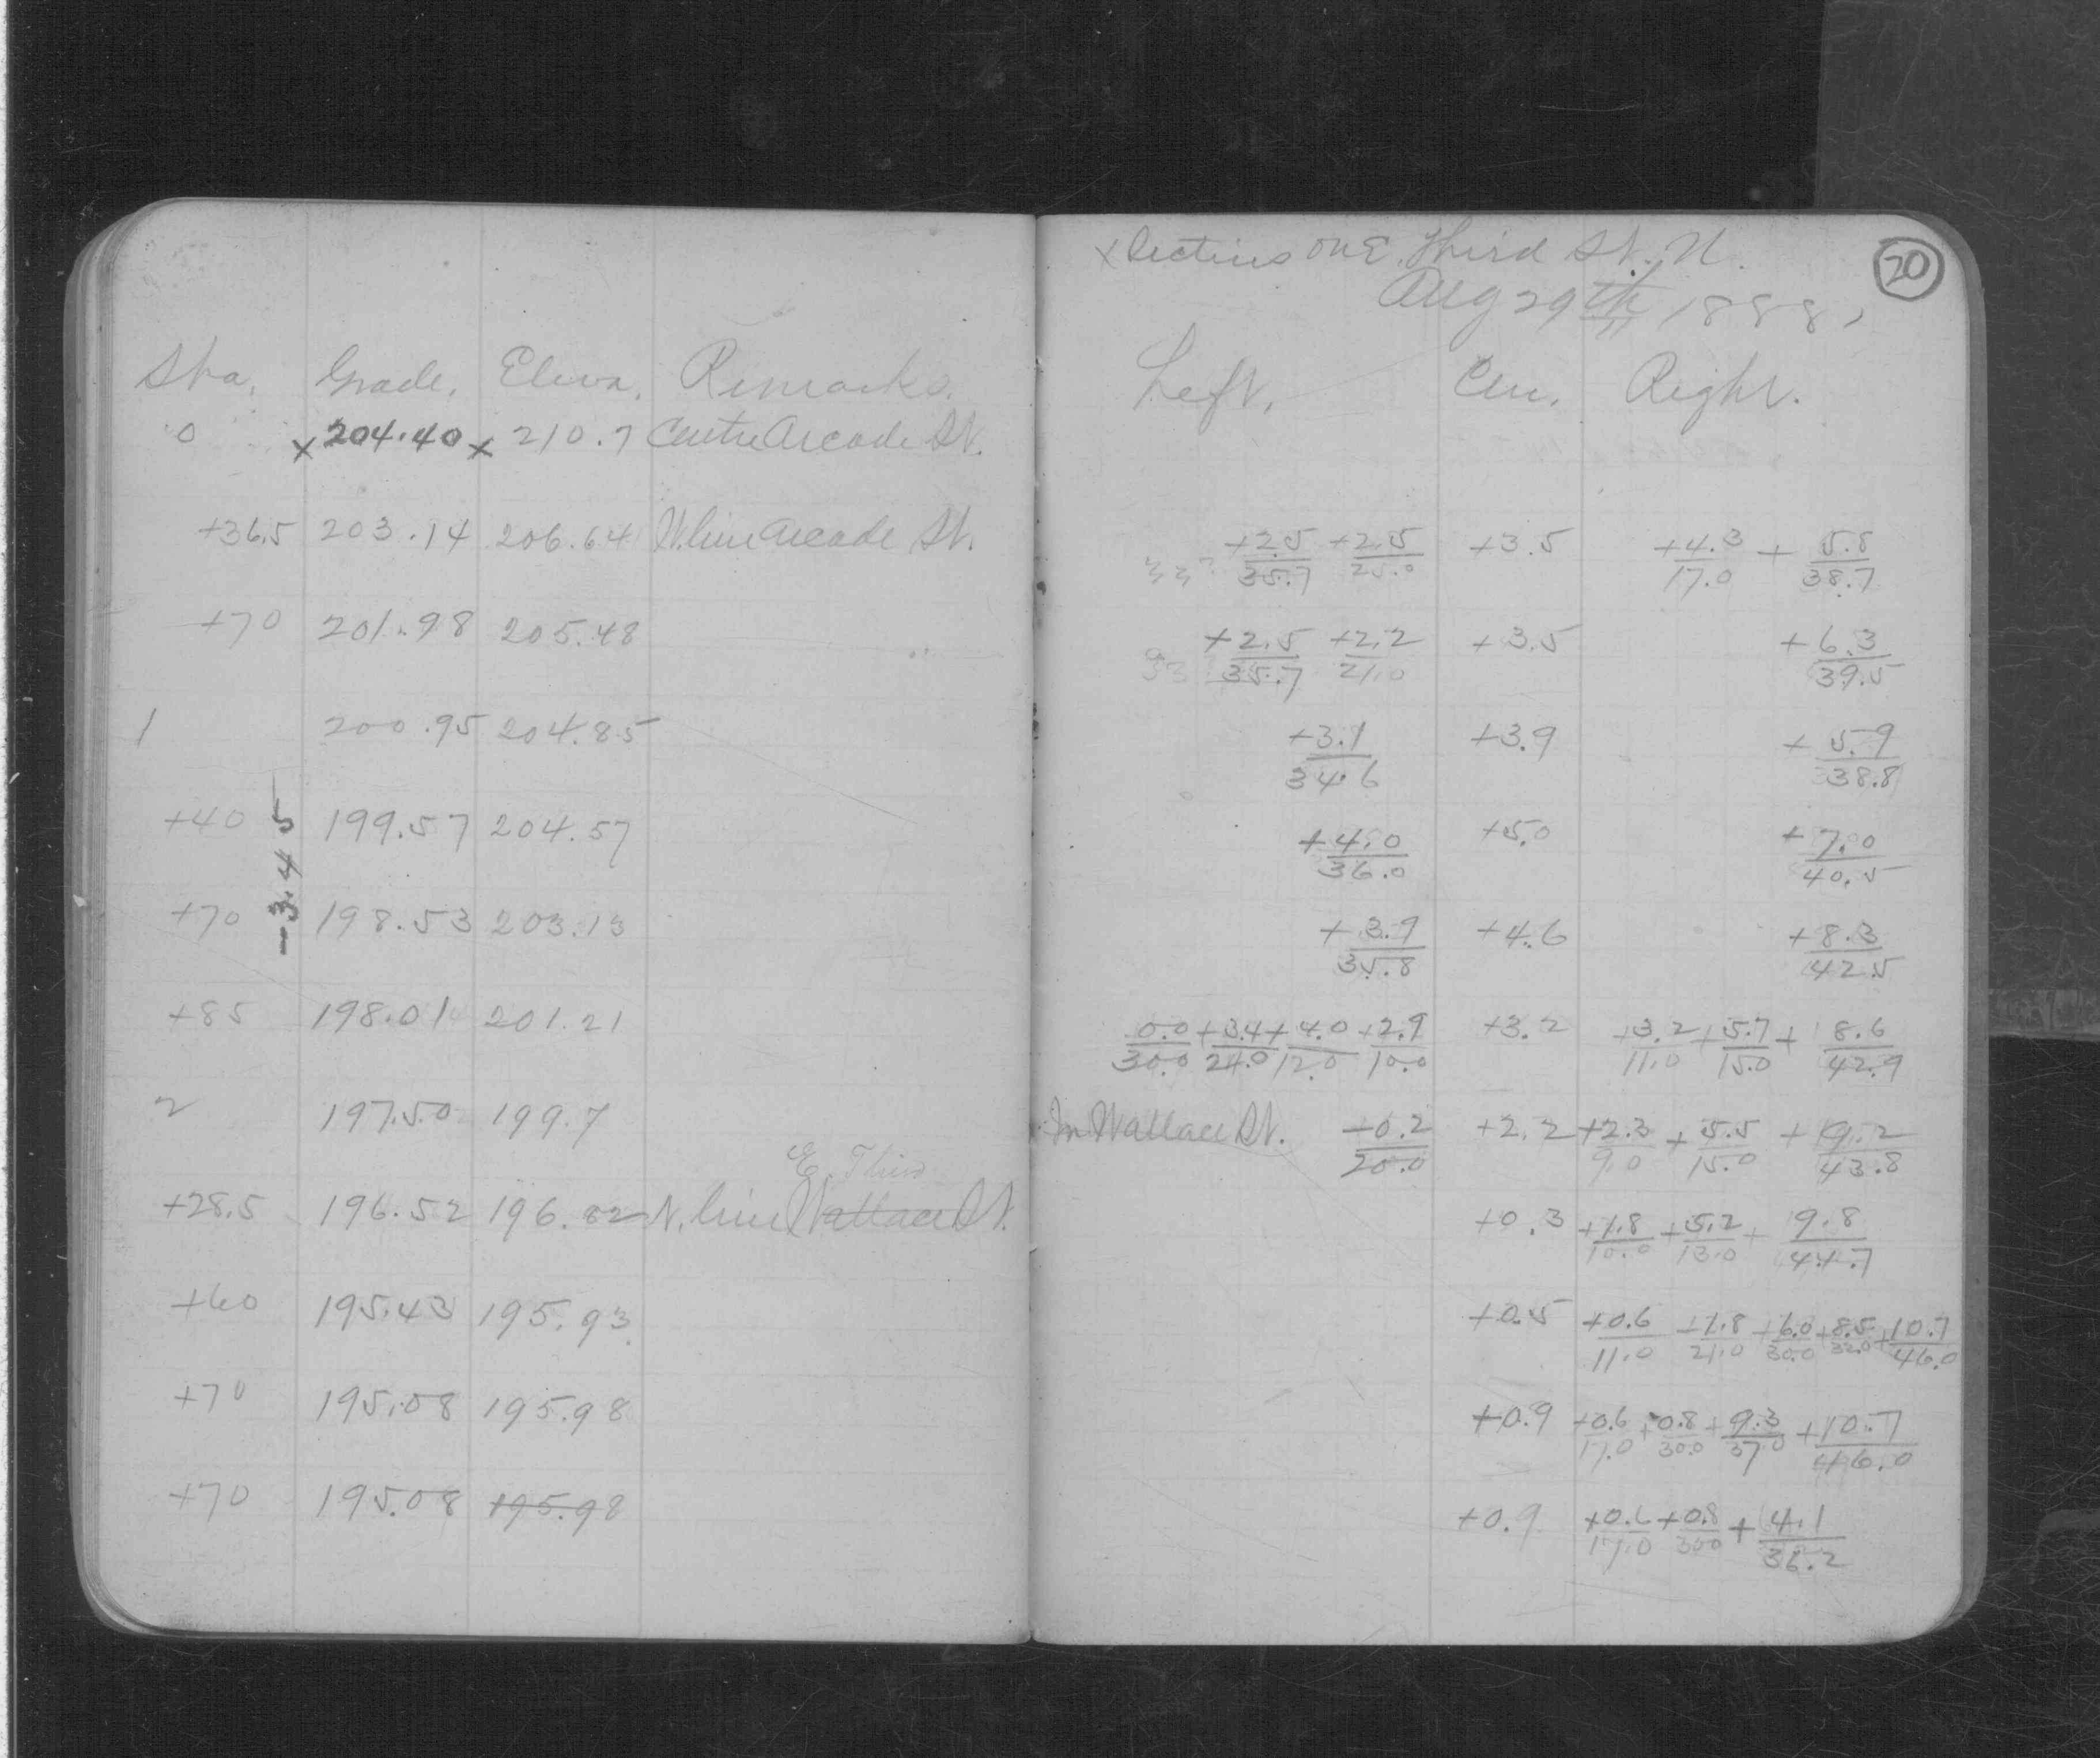 Sta. Grade. Eleva. Remarks.
0 x 204.40 x 210.7 Centre Arcade St.
+36.5 203.14 206.64 N. line Arcade St.
+70 201.98 205.48
1 200.95 204.85
+40 199.57 204.57
-3.45
+70 198.53 203.13
+85 198.01 201.21
2 197.50 199.7
E. Third
+28.5 196.52 196.82 N. line Wallace St.
+60 195.43 195.93
+70 195.08 195.98
+70 195.08 195.98
x Sections on E. Third St. N. 20
Aug 29th 1888,
Left. Cen. Right.
+2.5/35.7 +2.5/25.0 +3.5 +4.3/17.0 + 5.8/38.7
33 +2.5/35.7 +2.2/21.0 +3.5 +6.3/39.5
+3.1/34.6 +3.9 +5.9/38.8
+4.0/36.0 +5.0 +7.0/40.5
+3.9/35.8 +4.6 +8.3/42.5
0.0/30.0 +3.4/24.0 +4.0/12.0 +2.9/10.0 +3.2 +3.2/11.0 +5.7/15.0 + 8.6/42.9
In Wallace St. +0.2/20.0 +2.2 +2.3/9.0 +5.5/15.0 + 9.2/43.8
+0.3 +1.8/10.0 +5.2/13.0 + 9.8/44.7
+0.5 +0.6/11.0 +1.8/21.0 +6.0/30.0 +8.5/32.0 +10.7/46.0
+0.9 +0.6/17.0 +0.8/30.0 +9.3/37.0 +10.7/46.0
+0.9 +0.6/17.0 +0.8/300 + 4.1/36.2